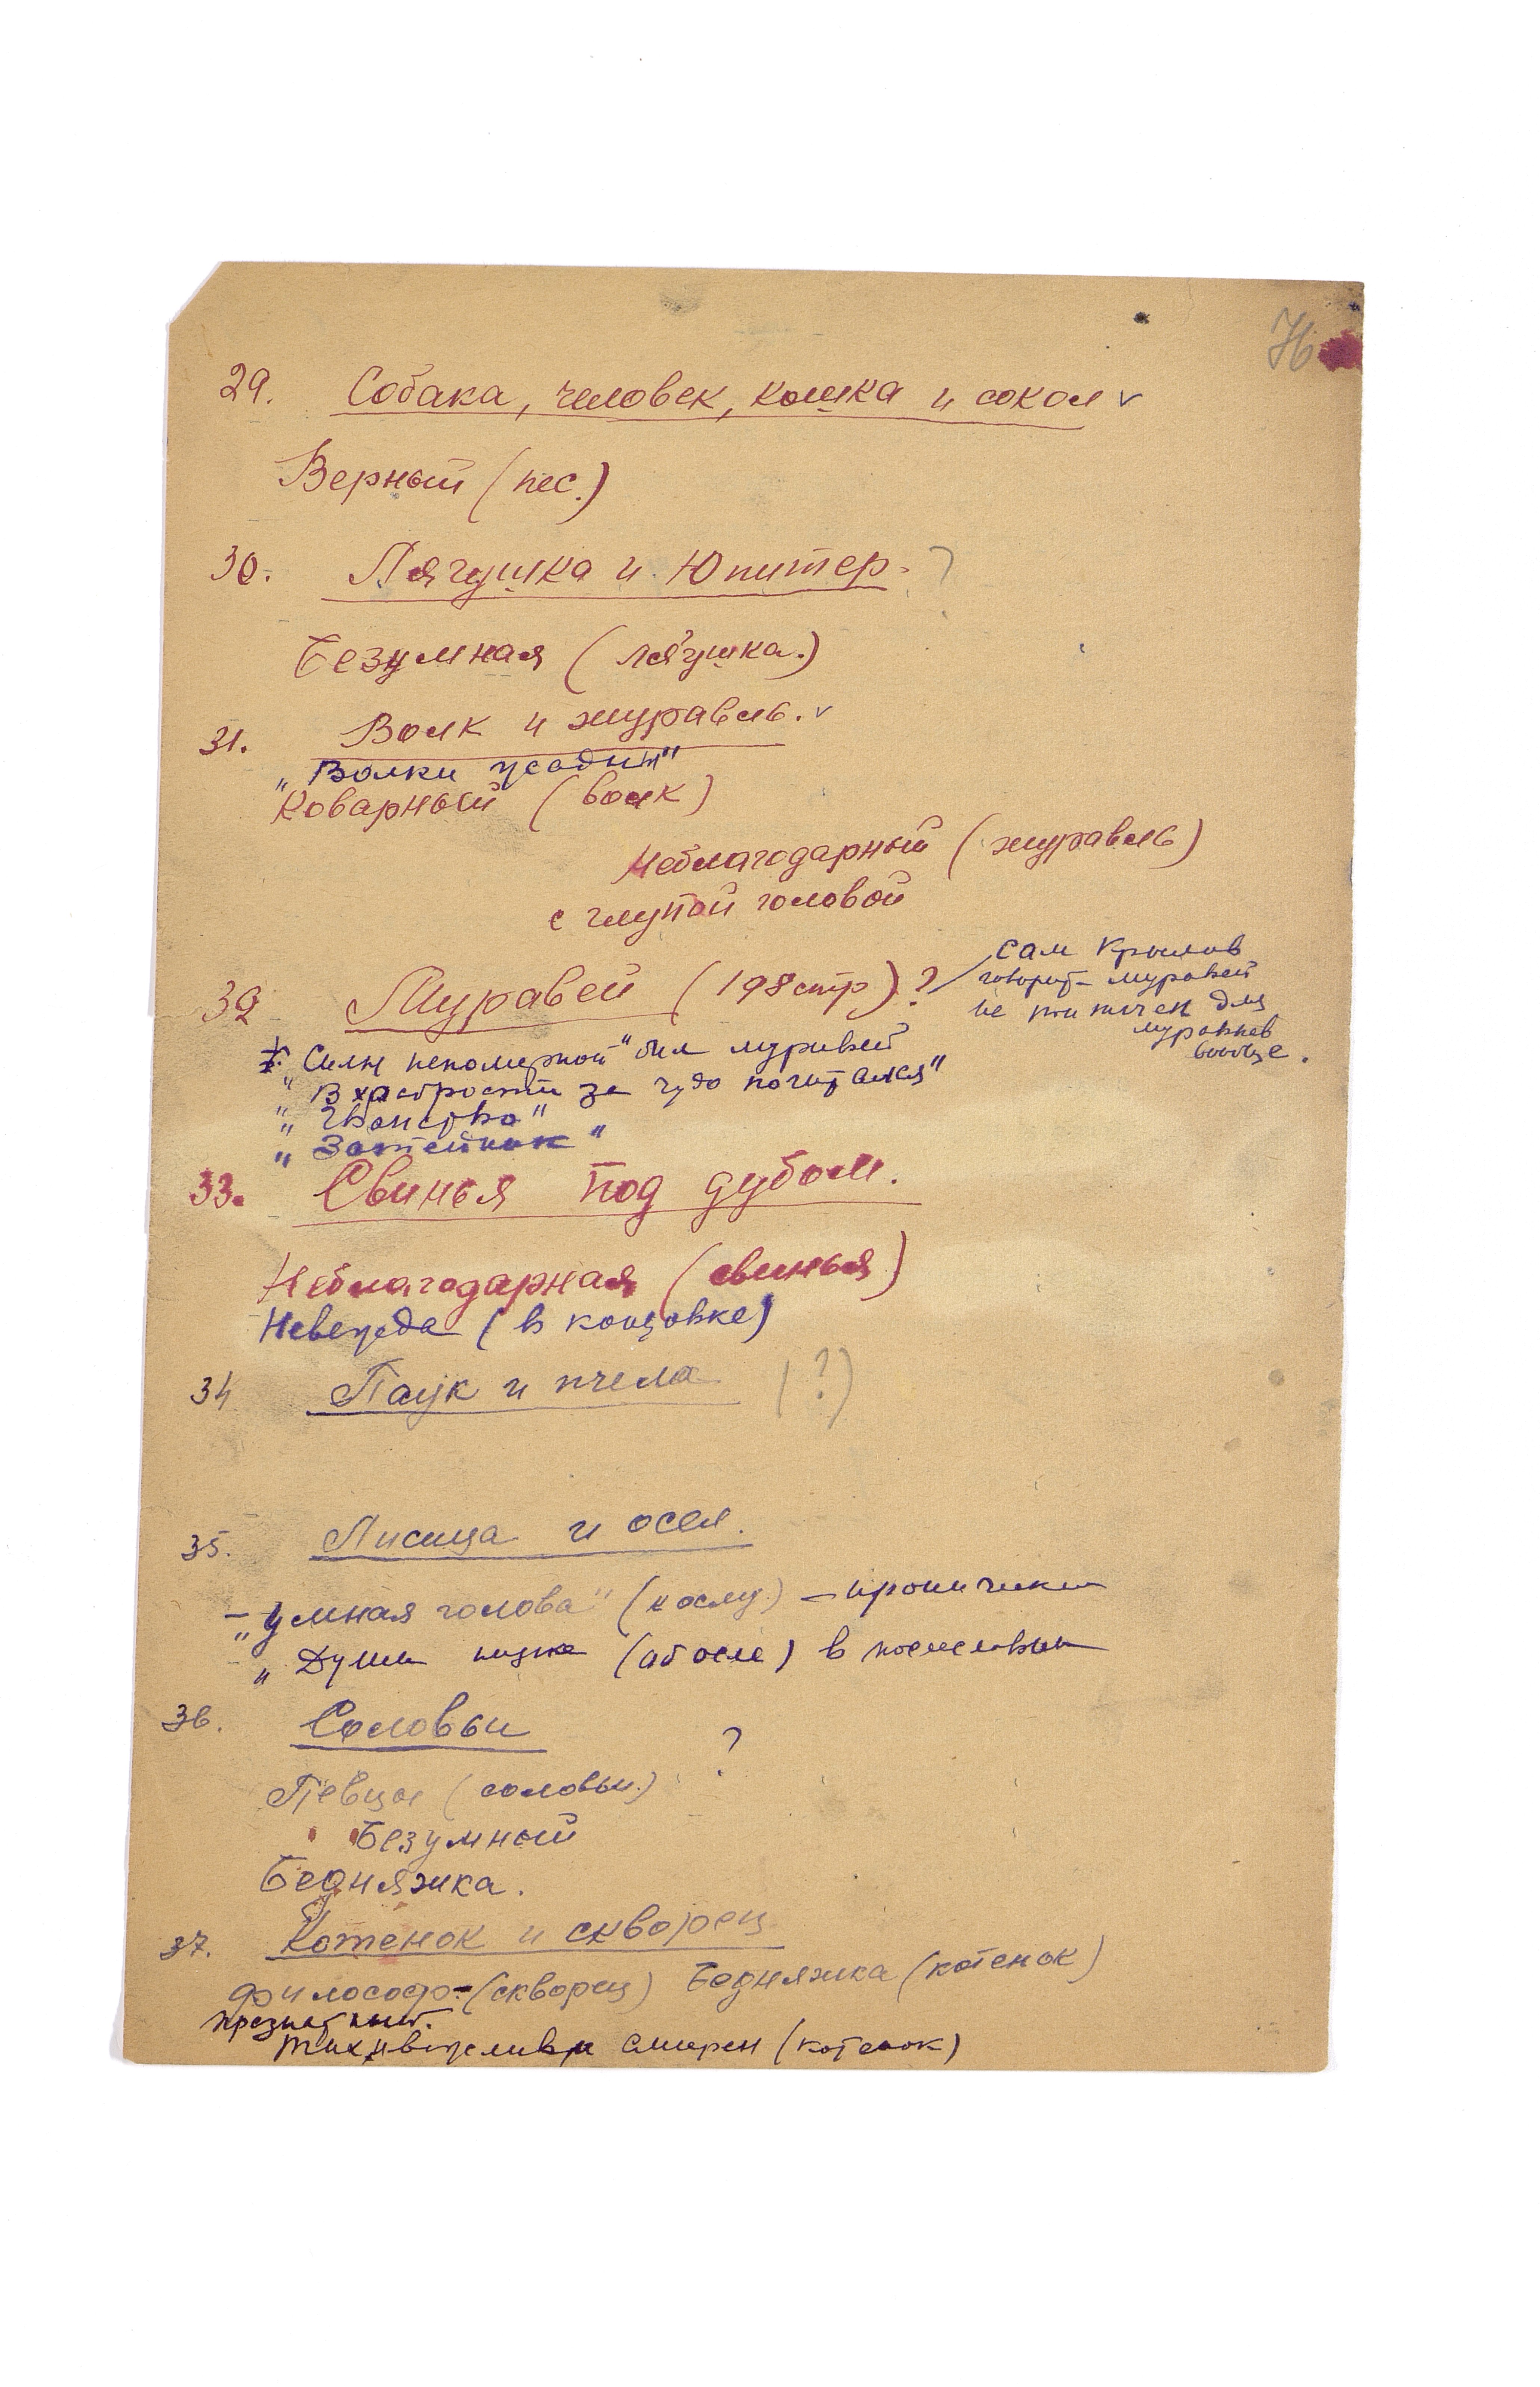 76
29. Собака, человек, кошка и сокол ✓
Верный (пес.)
30. Лягушка и Юпитер. ?
Безумная (лягушка.)
31. Волк и журавль. ✓
„Волки жадны"
Коварный (волк)
Неблагодарный (журавль)
с глупой головой
32 Муравей (198 стр) ?
сам Крылов
говорит – муравей
не типичен для
муравьев
вообще.
Силы непомерной" был муравей
„В храбрости за чудо почитался"
„Чванство"
„Затейник"
33. Свинья под дубом.
Неблагодарная (свинья)
Невежда (в концовке)
34 Паук и пчела (?)
35. Лисица и осел.
– „Умная голова" (к ослу) – иронически
„Души низкие (об осле) в послесловии
36. Соловьи
Певцы (соловьи.) ?
Безумный
Бедняжка.
37. Котенок и скворец
Философ – (скворец) Бедняжка (котенок)
презнатный.
Тих, вежлив и смирен (котенок)